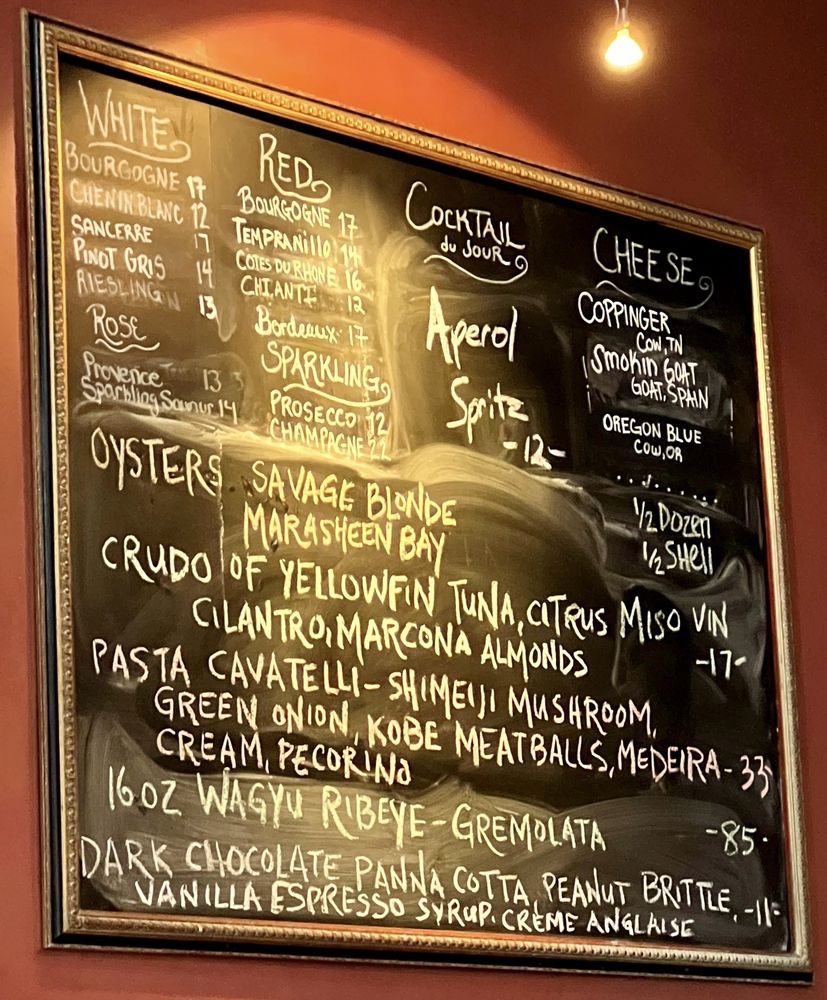 WHITE
BOURGOGNE 17
CHENIN BLANC 12
SANCERRE 17
PINOT GRIS 14
RIESLING 13
ROSE
Provence 13
Sparkling Saumur 14
RED
BOURGOGNE 17
TEMPRANILLO 14
COTES DU RHONE 16
CHIANTI 12
Bordeaux 17
SPARKLING
PROSECCO 12
CHAMPAGNE 22
COCKTAIL
du JOUR
Aperol
Spritz
-12-
CHEESE
COPPINGER
COW, TN
Smokin GOAT
GOAT, SPAIN
OREGON BLUE
COW, OR
1/2 Dozen
1/2 Shell
OYSTERS SAVAGE BLONDE
MARASHEEN BAY
CRUDO OF YELLOWFIN TUNA, CITRUS MISO VIN
CILANTRO, MARCONA ALMONDS -17-
PASTA CAVATELLI - SHIMEIJI MUSHROOM,
GREEN ONION, KOBE MEATBALLS, MEDEIRA - 33
CREAM, PECORINO
16 OZ WAGYU RIBEYE - GREMOLATA -85-
DARK CHOCOLATE PANNA COTTA, PEANUT BRITTLE, -11-
VANILLA ESPRESSO SYRUP. CRÈME ANGLAISE